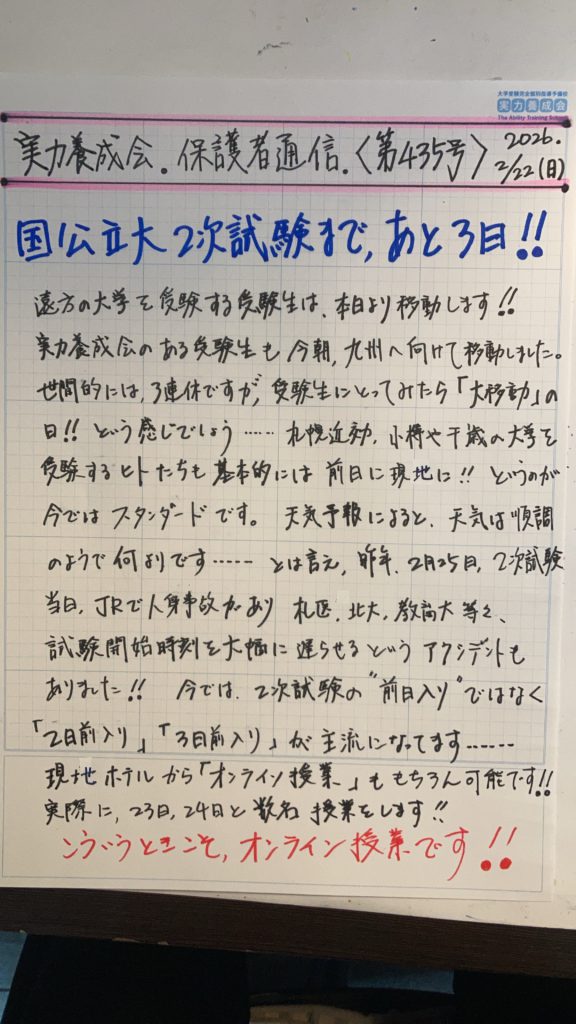 大学受験完全個別指導予備校
実力養成会
The Ability Training School
実力養成会. 保護者通信.〈第435号〉2026. 2/22(日)
国公立大2次試験まで, あと3日!!
遠方の大学を受験する受験生は、本日より移動します!!
実力養成会のある受験生も今朝, 九州へ向けて移動しました。
世間的には, 3連休ですが, 受験生にとってみたら「大移動」の
日!! という感じでしょう…… 札幌近効, 小樽や千歳の大学を
受験するヒトたちも基本的には前日に現地に!! というのが
今ではスタンダードです。 天気予報によると、天気は順調
のようで何よりです…… とは言え, 昨年、2月25日, 2次試験
当日, JRで人身事故があり 札医, 北大, 教育大等々、
試験開始時刻を大幅に遅らせるというアクシデントも
ありました!! 今では、2次試験の"前日入り"ではなく
「2日前入り」「3日前入り」が主流になってます……
現地ホテルから「オンライン授業」ももちろん可能です!!
実際に, 23日, 24日と数名 授業をします!!
こういうときこそ, オンライン授業です!!